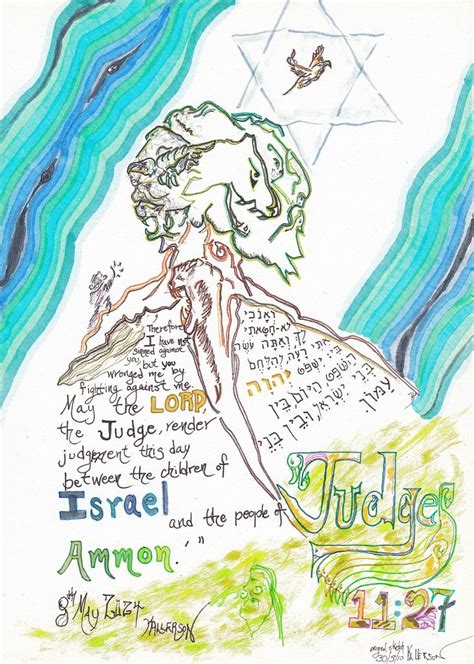 Therefore
I have not
sinned against
you, but you
wronged me by
fighting against me.
May the LORD,
the Judge, render
judgement this day
between the children of
Israel
and the people of
Ammon."
ואנכי
לא-חטאתי
לך ואתה עשה
אתי רעה להלחם
בי ישפט יהוה
השפט היום בין
בני ישראל ובין בני
עמון
Judges
11:27
May 2024